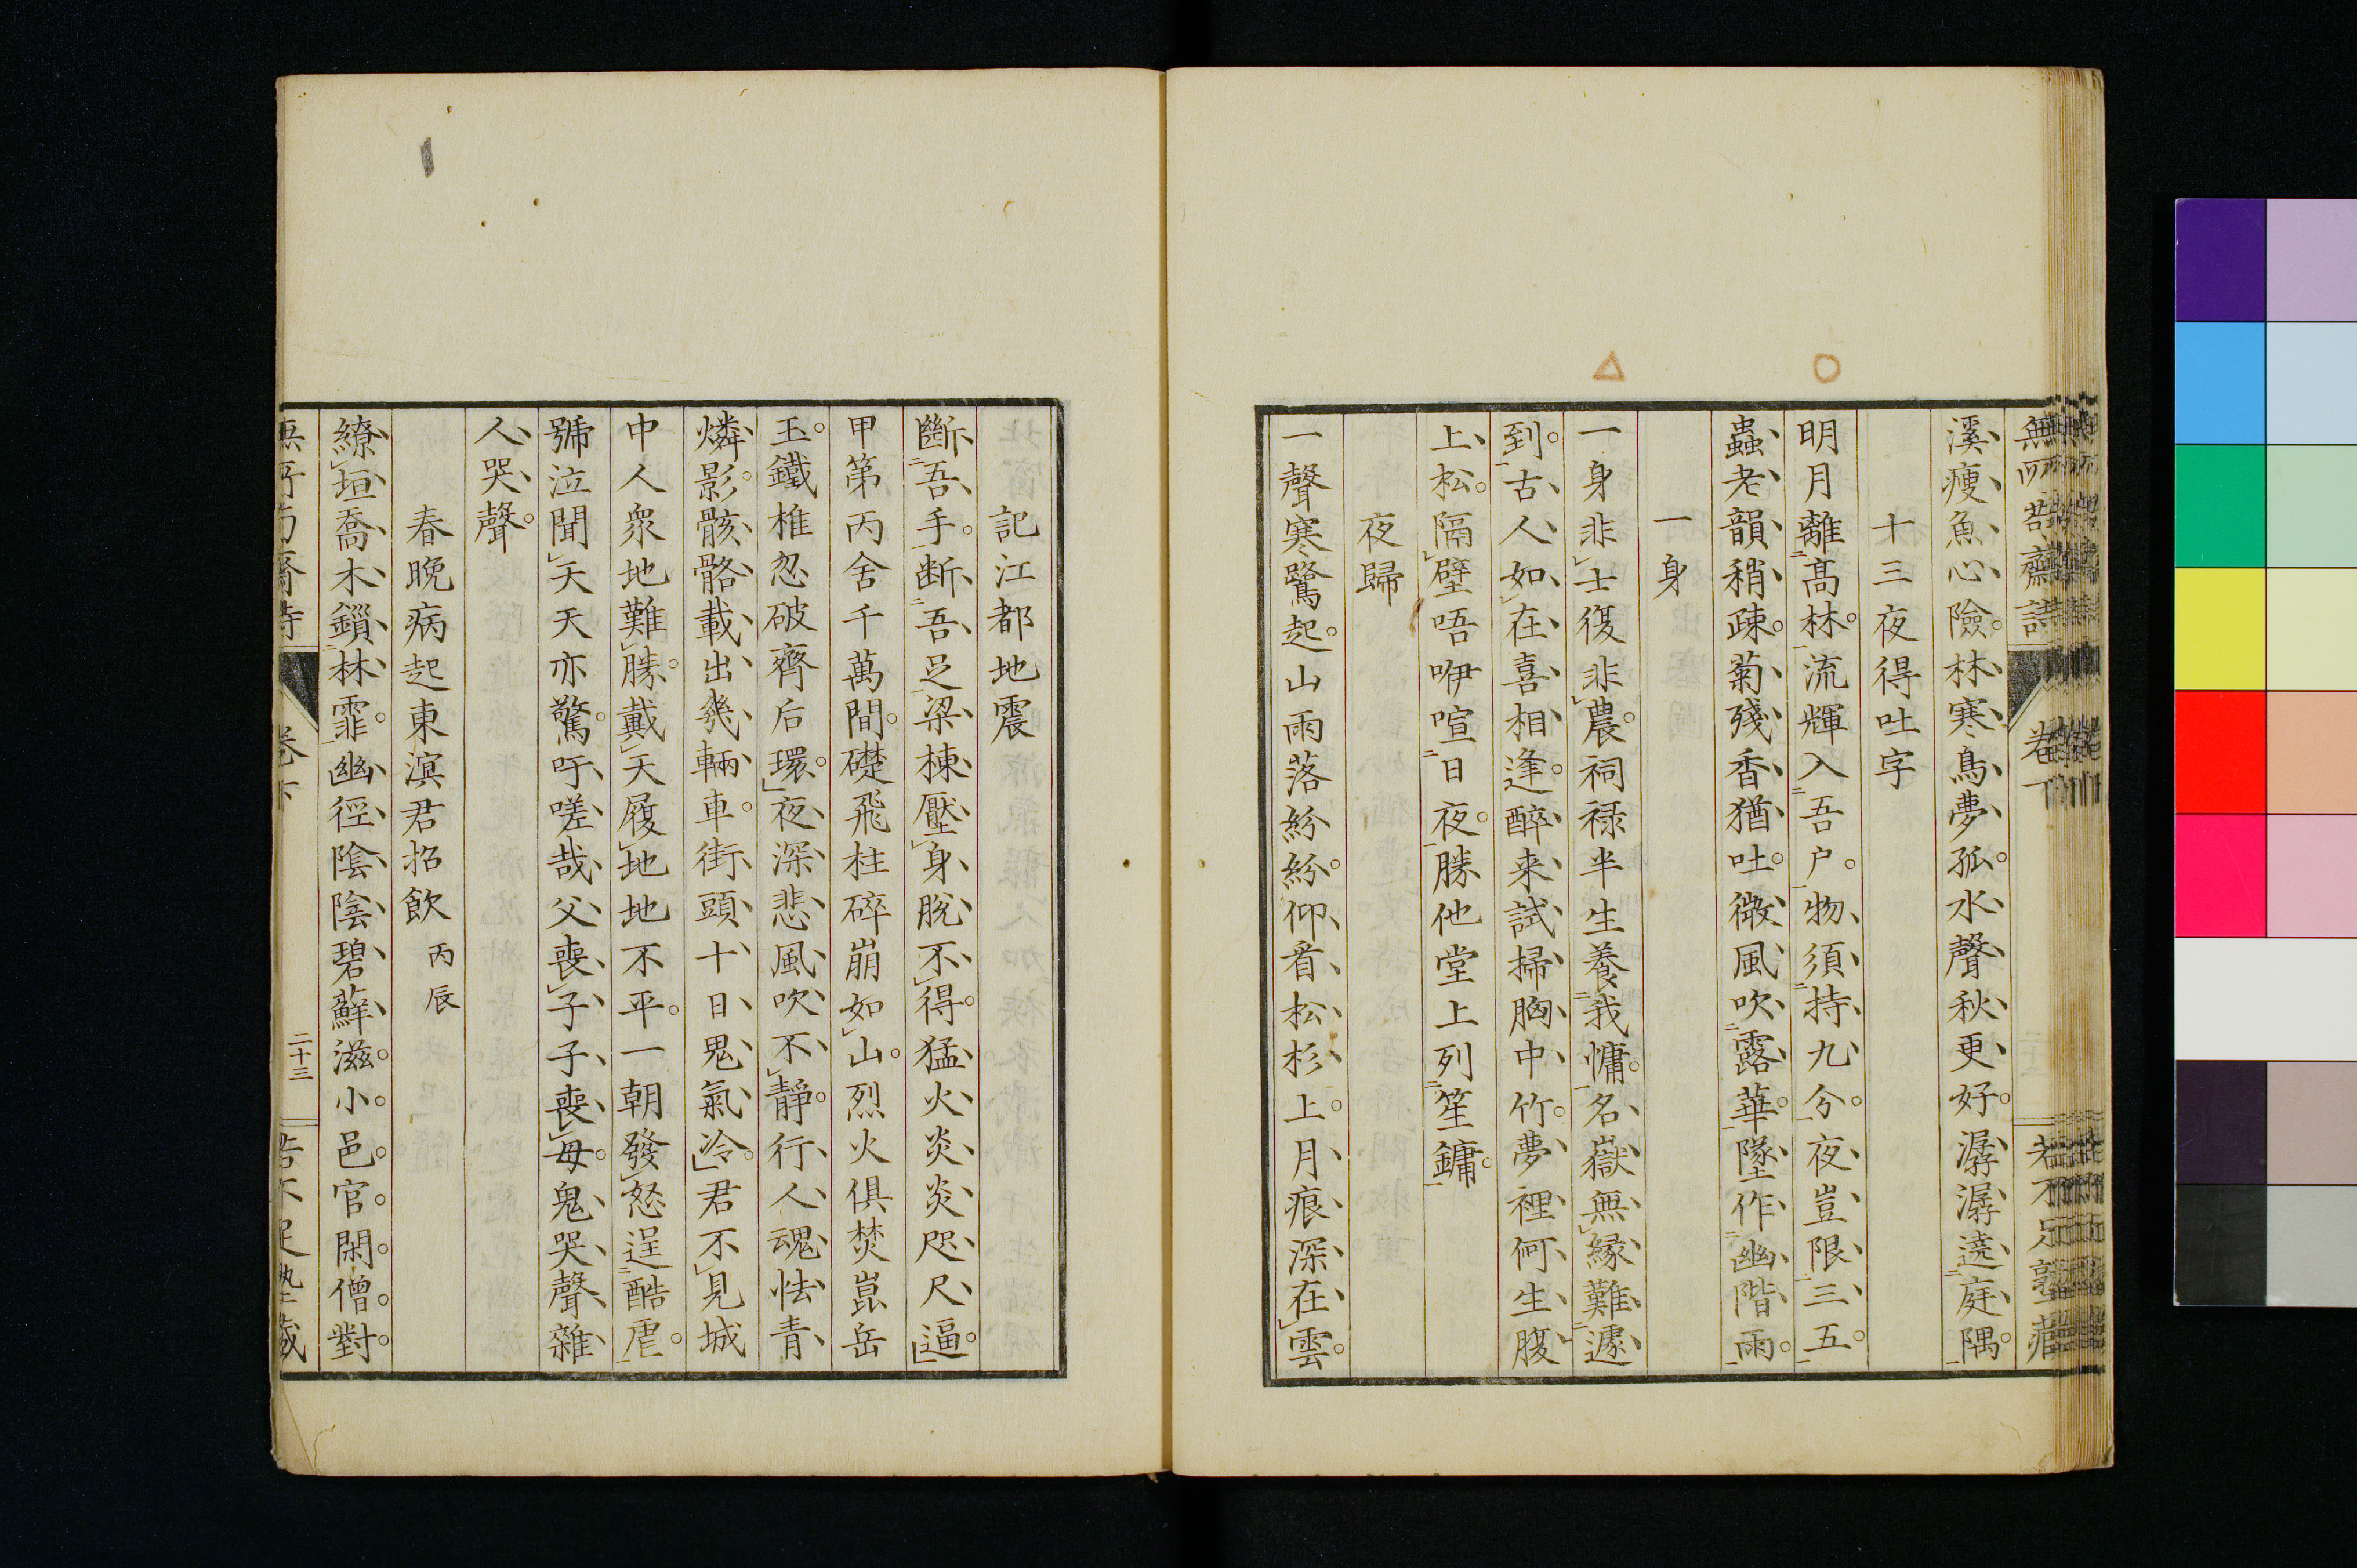 無所苟齋詩 卷下
溪瘦魚心險林寒鳥夢孤水聲秋更好潺潺遶庭隅
十三夜得吐字
明月離高林流輝入吾戶物須持九分夜豈限三五
蟲老韻稍疎菊殘香猶吐微風吹露華墜作幽階雨
一身
一身非士復非農祠祿半生養我慵名嶽無緣難遽
到古人如在喜相逢醉来試掃胸中竹夢裡何生腹
上松隔壁唔咿喧日夜勝他堂上列笙鏞
夜歸
一聲寒鷺起山雨落紛紛仰看松杉上月痕深在雲
記江都地震
斷吾手斷吾足梁棟壓身脫不得猛火炎炎咫尺逼
甲第丙舍千萬間礎飛柱碎崩如山烈火俱焚崑岳
玉鐵椎忽破齊后環夜深悲風吹不靜行人魂怯青
燐影骸骼載出幾輛車街頭十日鬼氣冷君不見城
中人眾地難勝戴天履地地不平一朝發怒逞酷虐
號泣聞天天亦驚吁嗟哉父喪子子喪母鬼哭聲雜
人哭聲
春晚病起東溟君招飲 丙辰
繚垣喬木鎖林霏幽徑陰陰碧蘚滋小邑官閑僧對
無所苟齋詩 卷下 二十三